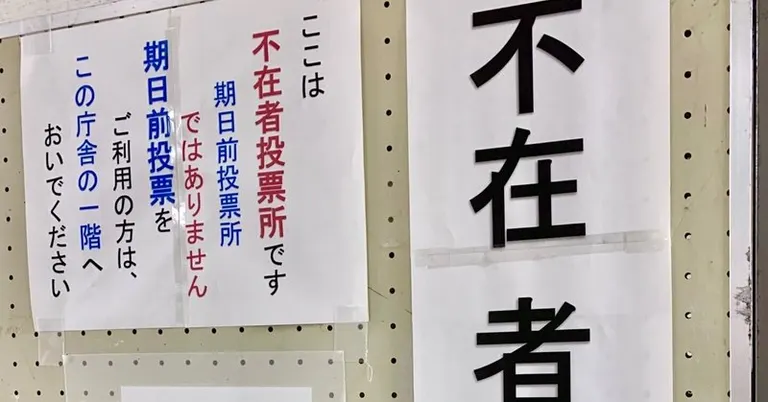 不在者
ここは
不在者投票所です
期日前投票所
ではありません
期日前投票を
ご利用の方は、
この庁舎の一階へ
おいでください